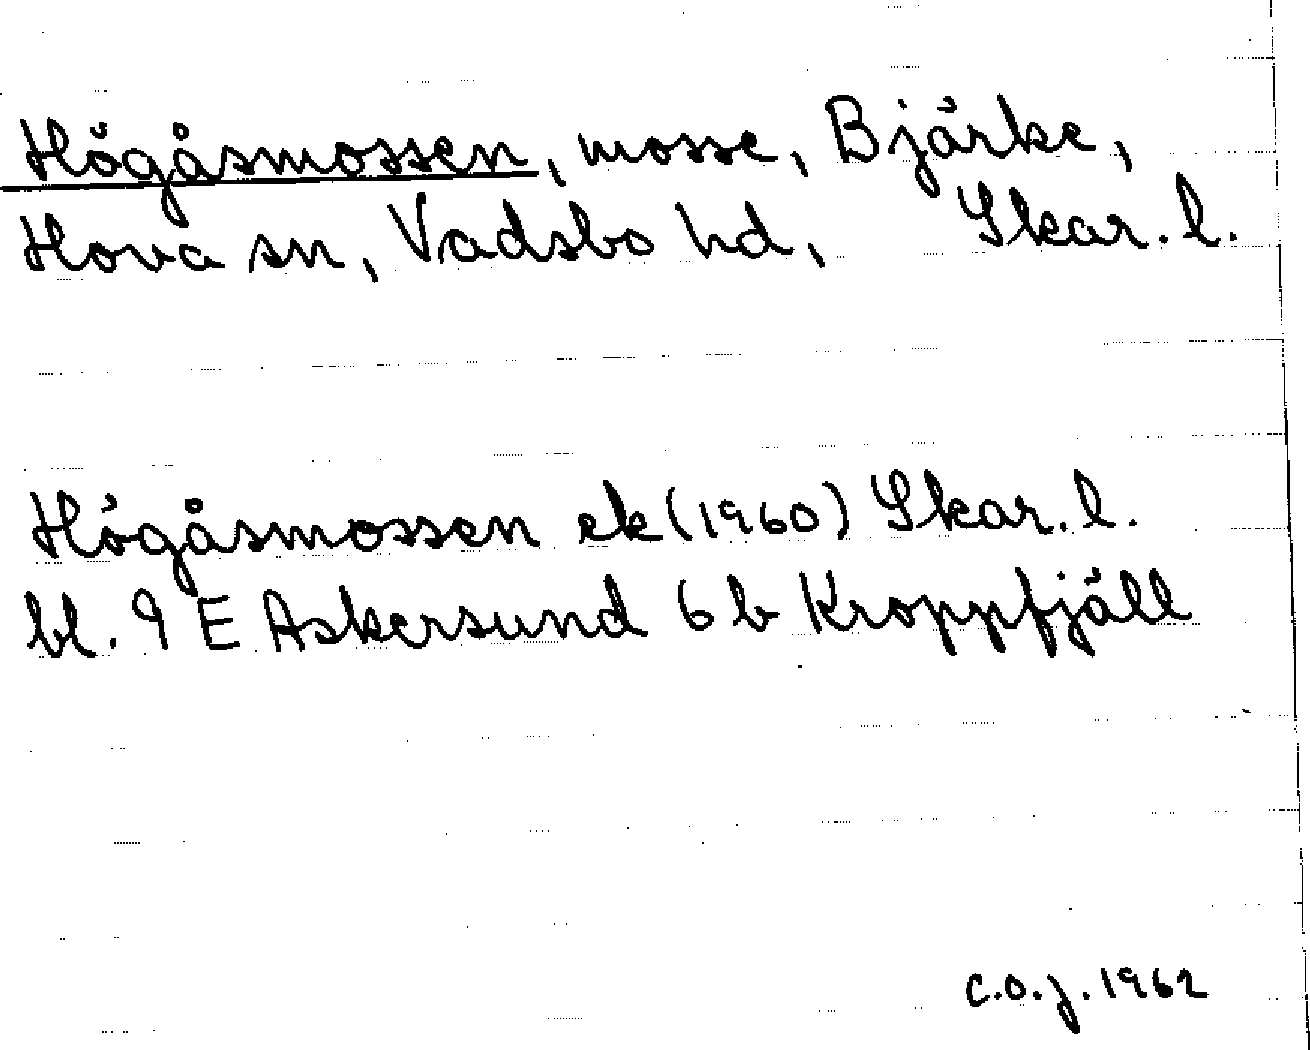 Högåsmossen, mosse, Bjärke,
Hova sn, Vadsbo hd, Skar. l.
Högåsmossen ek (1960) Skar. l.
bl. 9 E Askersund 6 b Kroppfjäll
C.O.J. 1962